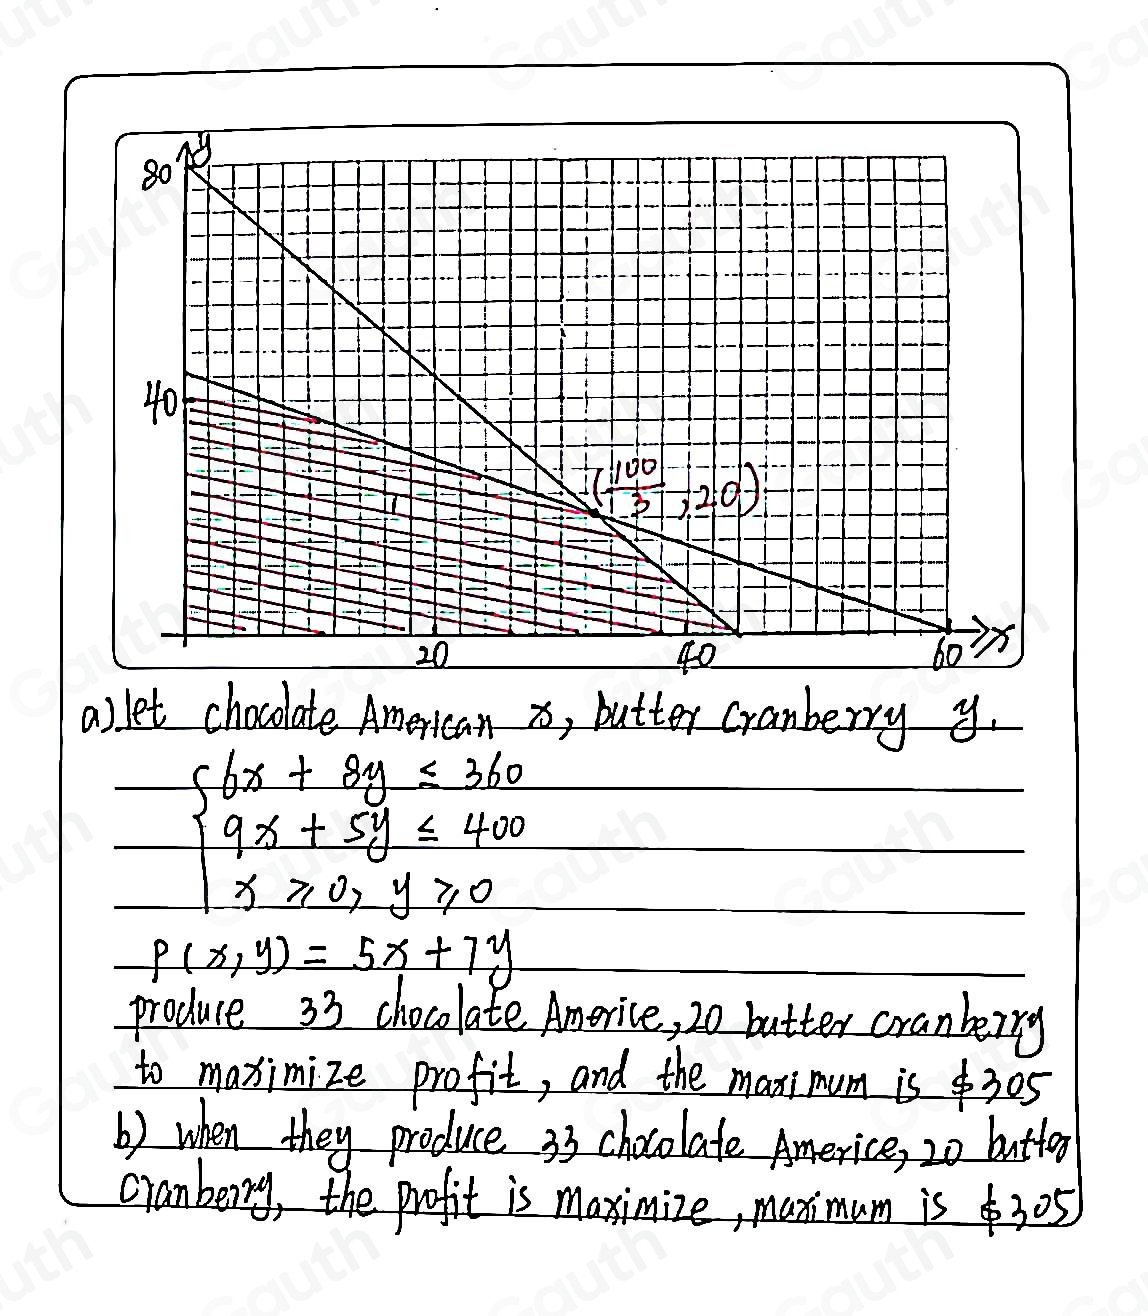 y
80
40
(100/3, 20)
20 40 60 x
a) let chocolate American x, butter cranberry y.
6x + 8y ≤ 360
9x + 5y ≤ 400
x ≥ 0, y ≥ 0
P(x, y) = 5x + 7y
produce 33 chocolate Americe, 20 butter cranberry
to maximize profit, and the maximum is $305
b) when they produce 33 chocolate Americe, 20 butter
cranberry, the profit is maximize, maximum is $305
Gauth